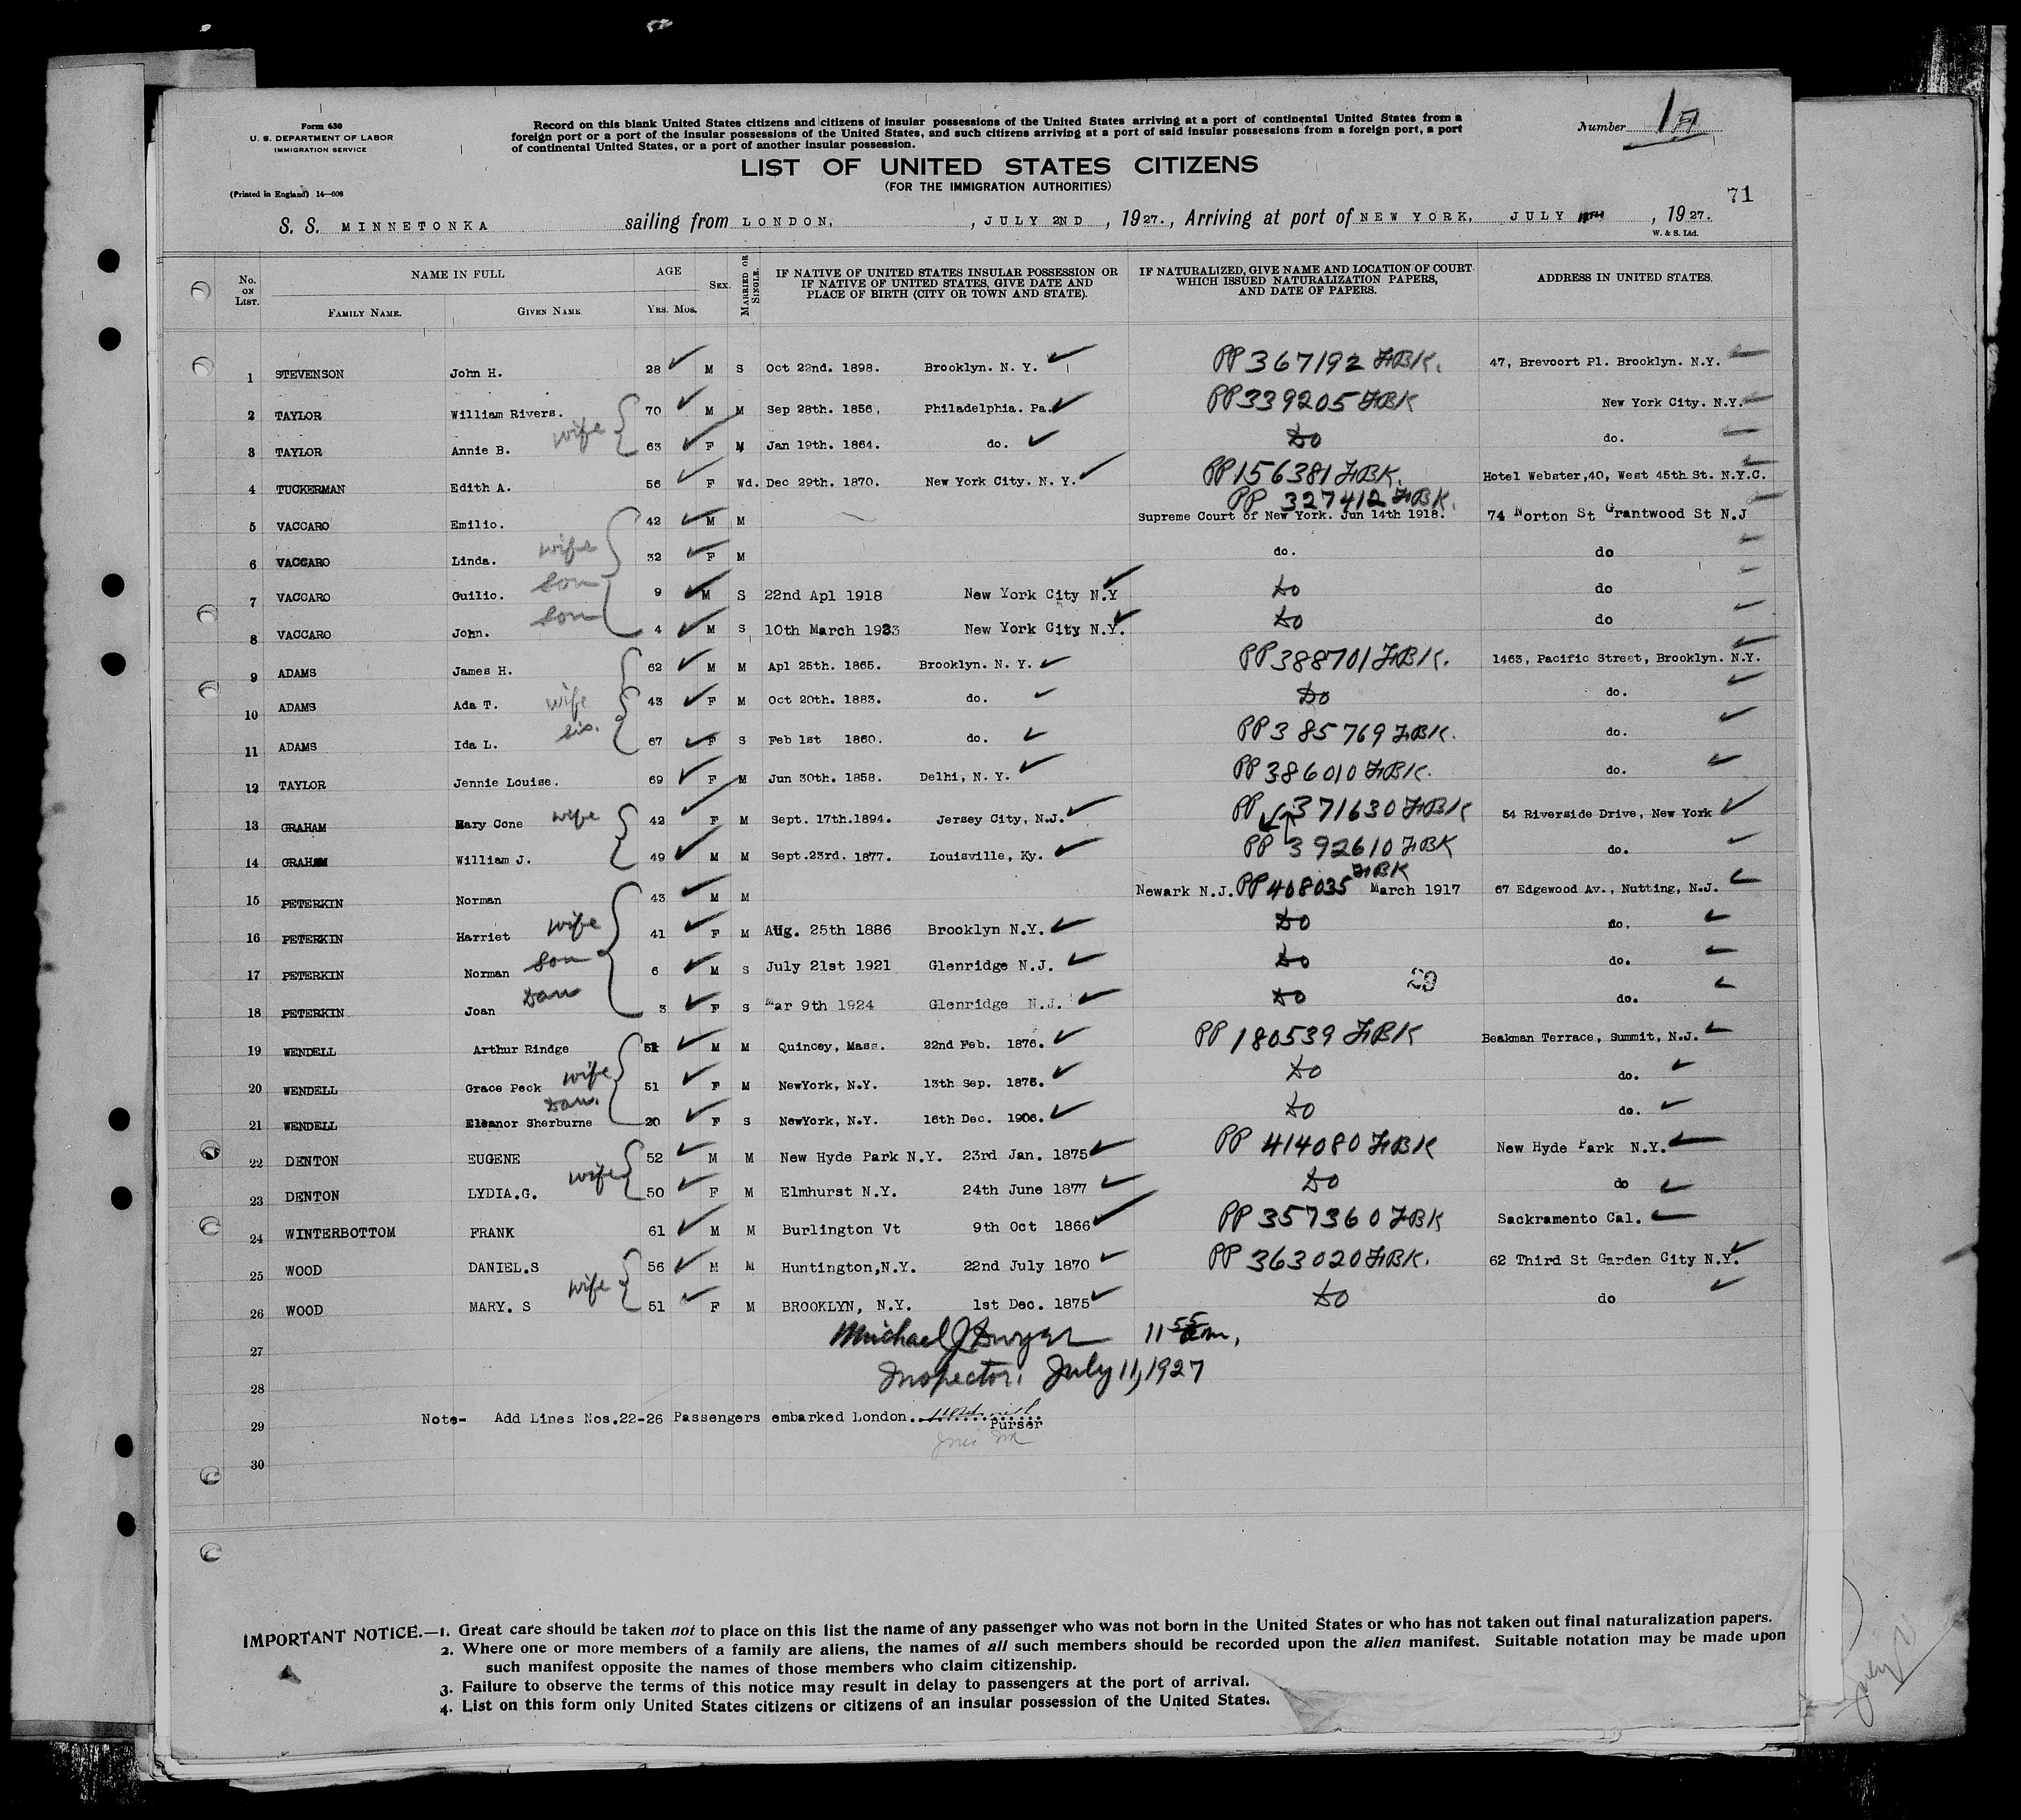 Form 630
U. S. DEPARTMENT OF LABOR
IMMIGRATION SERVICE
(Printed in England) 14—608
Record on this blank United States citizens and citizens of insular possessions of the United States arriving at a port of continental United States from a
foreign port or a port of the insular possessions of the United States, and such citizens arriving at a port of said insular possessions from a foreign port, a port
of continental United States, or a port of another insular possession.
Number 1
LIST OF UNITED STATES CITIZENS
(FOR THE IMMIGRATION AUTHORITIES)
71
S. S. MINNETONKA sailing from LONDON, , JULY 2ND , 1927., Arriving at port of NEW YORK, JULY , 1927.
W. & S. Ltd.
No. ON LIST. NAME IN FULL FAMILY NAME. GIVEN NAME. AGE YRS. MOS. SEX. MARRIED OR SINGLE. IF NATIVE OF UNITED STATES INSULAR POSSESSION OR IF NATIVE OF UNITED STATES, GIVE DATE AND PLACE OF BIRTH (CITY OR TOWN AND STATE). IF NATURALIZED, GIVE NAME AND LOCATION OF COURT WHICH ISSUED NATURALIZATION PAPERS, AND DATE OF PAPERS. ADDRESS IN UNITED STATES.
1 STEVENSON John H. 28 M S Oct 22nd. 1898. Brooklyn. N. Y. PP 367192 FBK. 47, Brevoort Pl. Brooklyn. N.Y.
2 TAYLOR William Rivers. 70 M M Sep 28th. 1856, Philadelphia. Pa. PP 339205 FBK New York City. N.Y.
3 TAYLOR Annie B. wife 63 F M Jan 19th. 1864. do. Do do.
4 TUCKERMAN Edith A. 56 F Wd. Dec 29th. 1870. New York City. N. Y. PP 156381 FBK. Hotel Webster,40, West 45th St. N.Y.C.
PP 327412 FBK.
5 VACCARO Emilio. 42 M M Supreme Court of New York. Jun 14th 1918. 74 Norton St Grantwood St N.J
6 VACCARO Linda. wife 32 F M do. do
7 VACCARO Guilio. Son 9 M S 22nd Apl 1918 New York City N.Y Do do
8 VACCARO John. Son 4 M S 10th March 1923 New York City N.Y. Do do
9 ADAMS James H. 62 M M Apl 25th. 1865. Brooklyn. N. Y. PP 388701 FBK. 1463, Pacific Street, Brooklyn. N.Y.
10 ADAMS Ada T. wife 43 F M Oct 20th. 1883. do. Do do.
11 ADAMS Ida L. sis. 67 F S Feb 1st 1860. do. PP 385769 FBK. do.
12 TAYLOR Jennie Louise. 69 F M Jun 30th. 1858. Delhi, N. Y. PP 386010 FBK. do.
13 GRAHAM Mary Cone wife 42 F M Sept. 17th.1894. Jersey City, N.J. PP 371630 FBK 54 Riverside Drive, New York
14 GRAHAM William J. 49 M M Sept.23rd. 1877. Louisville, Ky. PP 392610 FBK do.
15 PETERKIN Norman 43 M M Newark N.J. PP 408035 FBK March 1917 67 Edgewood Av., Nutting, N.J.
16 PETERKIN Harriet wife 41 F M Aug. 25th 1886 Brooklyn N.Y. Do do.
17 PETERKIN Norman Son 6 M S July 21st 1921 Glenridge N.J. Do do.
29
18 PETERKIN Joan Dau 3 F S Mar 9th 1924 Glenridge N.J. Do do.
19 WENDELL Arthur Rindge 51 M M Quincey, Mass. 22nd Feb. 1876. PP 180539 FBK Beakman Terrace, Summit, N.J.
20 WENDELL Grace Peck wife 51 F M NewYork, N.Y. 13th Sep. 1875. Do do.
21 WENDELL Eleanor Sherburne Dau. 20 F S NewYork, N.Y. 16th Dec. 1906. Do do.
22 DENTON EUGENE 52 M M New Hyde Park N.Y. 23rd Jan. 1875 PP 414080 FBK New Hyde Park N.Y.
23 DENTON LYDIA.G. wife 50 F M Elmhurst N.Y. 24th June 1877 Do do
24 WINTERBOTTOM FRANK 61 M M Burlington Vt 9th Oct 1866 PP 357360 FBK Sackramento Cal.
25 WOOD DANIEL.S 56 M M Huntington,N.Y. 22nd July 1870 PP 363020 FBK. 62 Third St Garden City N.Y.
26 WOOD MARY. S wife 51 F M BROOKLYN, N.Y. 1st Dec. 1875 Do do
27 Michael J Dwyer 11 55 am,
28 Inspector. July 11, 1927
29 Note- Add Lines Nos.22-26 Passengers embarked London..
Purser
30
IMPORTANT NOTICE.—1. Great care should be taken not to place on this list the name of any passenger who was not born in the United States or who has not taken out final naturalization papers.
2. Where one or more members of a family are aliens, the names of all such members should be recorded upon the alien manifest. Suitable notation may be made upon
such manifest opposite the names of those members who claim citizenship.
3. Failure to observe the terms of this notice may result in delay to passengers at the port of arrival.
4. List on this form only United States citizens or citizens of an insular possession of the United States.